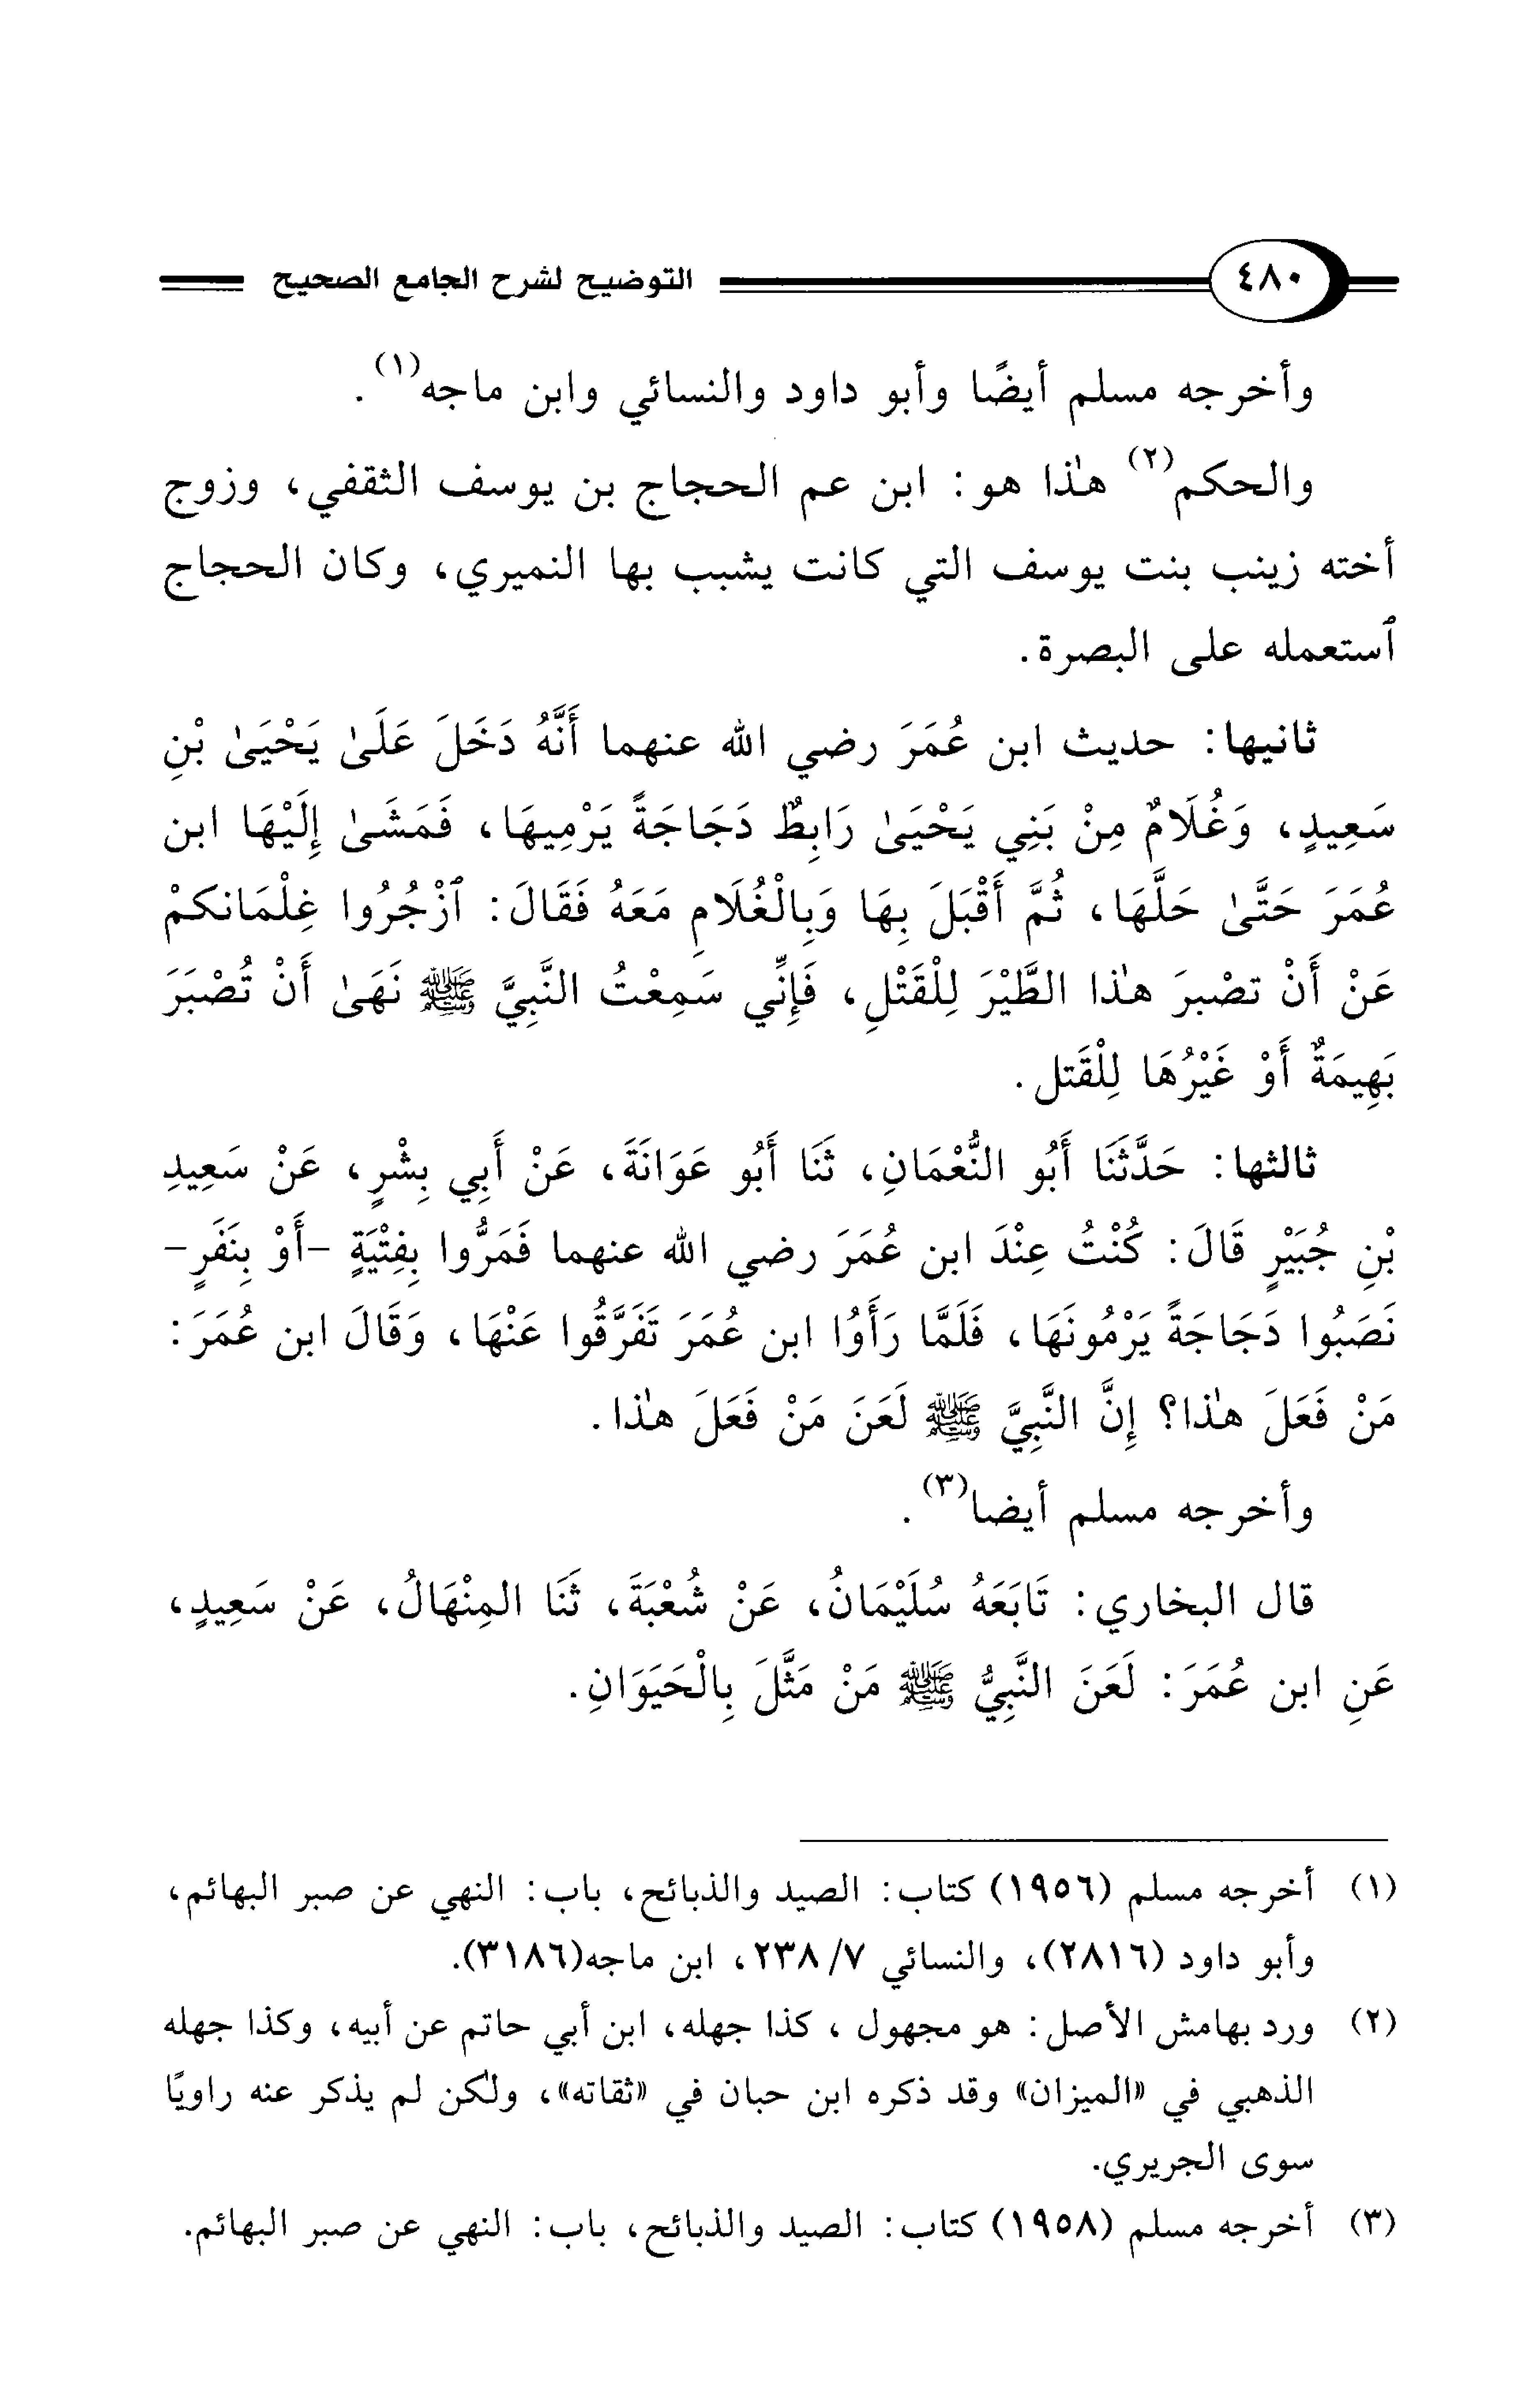 ٤٨٠ التوضيح لشرح الجامع الصحيح
وأخرجه مسلم أيضًا وأبو داود والنسائي وابن ماجه(١).
والحكم(٢) هٰذا هو: ابن عم الحجاج بن يوسف الثقفي، وزوج
أخته زينب بنت يوسف التي كانت يشبب بها النميري، وكان الحجاج
ٱستعمله على البصرة.
ثانيها: حديث ابن عُمَرَ رضي الله عنهما أَنَّهُ دَخَلَ عَلَىٰ يَحْيَىٰ بْنِ
سَعِيدٍ، وَغُلَامٌ مِنْ بَنِي يَحْيَىٰ رَابِطٌ دَجَاجَةً يَرْمِيهَا، فَمَشَىٰ إِلَيْهَا ابن
عُمَرَ حَتَّىٰ حَلَّهَا، ثُمَّ أَقْبَلَ بِهَا وَبِالْغُلَامِ مَعَهُ فَقَالَ: ٱزْجُرُوا غِلْمَانكمْ
عَنْ أَنْ تصْبرَ هٰذا الطَّيْرَ لِلْقَتْلِ، فَإِنِّي سَمِعْتُ النَّبِيَّ ﷺ نَهَىٰ أَنْ تُصْبَرَ
بَهِيمَةٌ أَوْ غَيْرُهَا لِلْقَتل.
ثالثها: حَدَّثَنَا أَبُو النُّعْمَانِ، ثَنَا أَبُو عَوَانَةَ، عَنْ أَبِي بِشْرٍ، عَنْ سَعِيدِ
بْنِ جُبَيْرٍ قَالَ: كُنْتُ عِنْدَ ابن عُمَرَ رضي الله عنهما فَمَرُّوا بِفِتْيَةٍ -أَوْ بِنَفَرٍ-
نَصَبُوا دَجَاجَةً يَرْمُونَهَا، فَلَمَّا رَأَوُا ابن عُمَرَ تَفَرَّقُوا عَنْهَا، وَقَالَ ابن عُمَرَ:
مَنْ فَعَلَ هٰذا؟ إِنَّ النَّبِيَّ ﷺ لَعَنَ مَنْ فَعَلَ هٰذا.
وأخرجه مسلم أيضا(٣).
قال البخاري: تَابَعَهُ سُلَيْمَانُ، عَنْ شُعْبَةَ، ثَنَا المِنْهَالُ، عَنْ سَعِيدٍ،
عَنِ ابن عُمَرَ: لَعَنَ النَّبِيُّ ﷺ مَنْ مَثَّلَ بِالْحَيَوَانِ.
(١) أخرجه مسلم (١٩٥٦) كتاب: الصيد والذبائح، باب: النهي عن صبر البهائم،
وأبو داود (٢٨١٦)، والنسائي ٧/ ٢٣٨، ابن ماجه(٣١٨٦).
(٢) ورد بهامش الأصل: هو مجهول ، كذا جهله، ابن أبي حاتم عن أبيه، وكذا جهله
الذهبي في «الميزان» وقد ذكره ابن حبان في «ثقاته»، ولٰكن لم يذكر عنه راويًا
سوى الجريري.
(٣) أخرجه مسلم (١٩٥٨) كتاب: الصيد والذبائح، باب: النهي عن صبر البهائم.